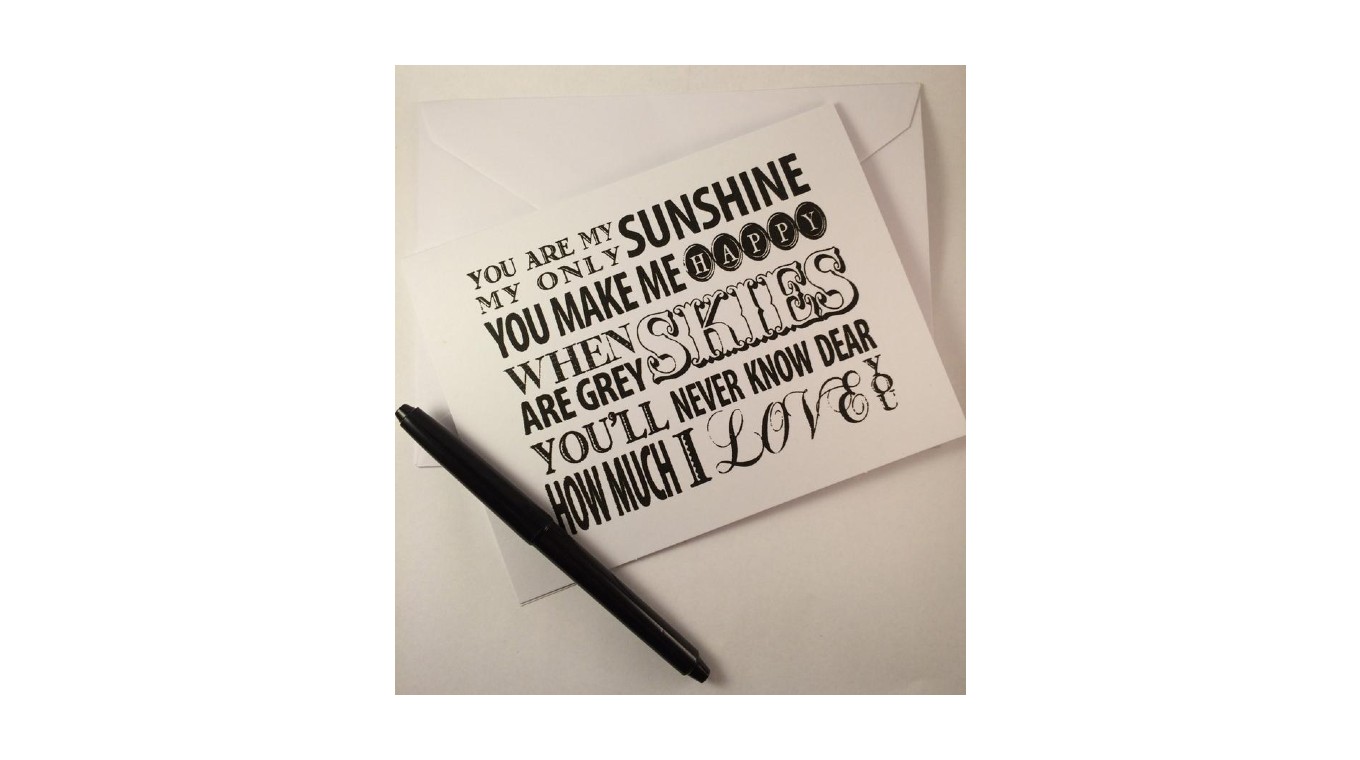 YOU ARE MY SUNSHINE
MY ONLY
YOU MAKE ME HAPPY
WHEN SKIES
ARE GREY
YOU'LL NEVER KNOW DEAR
HOW MUCH I LOVE YOU